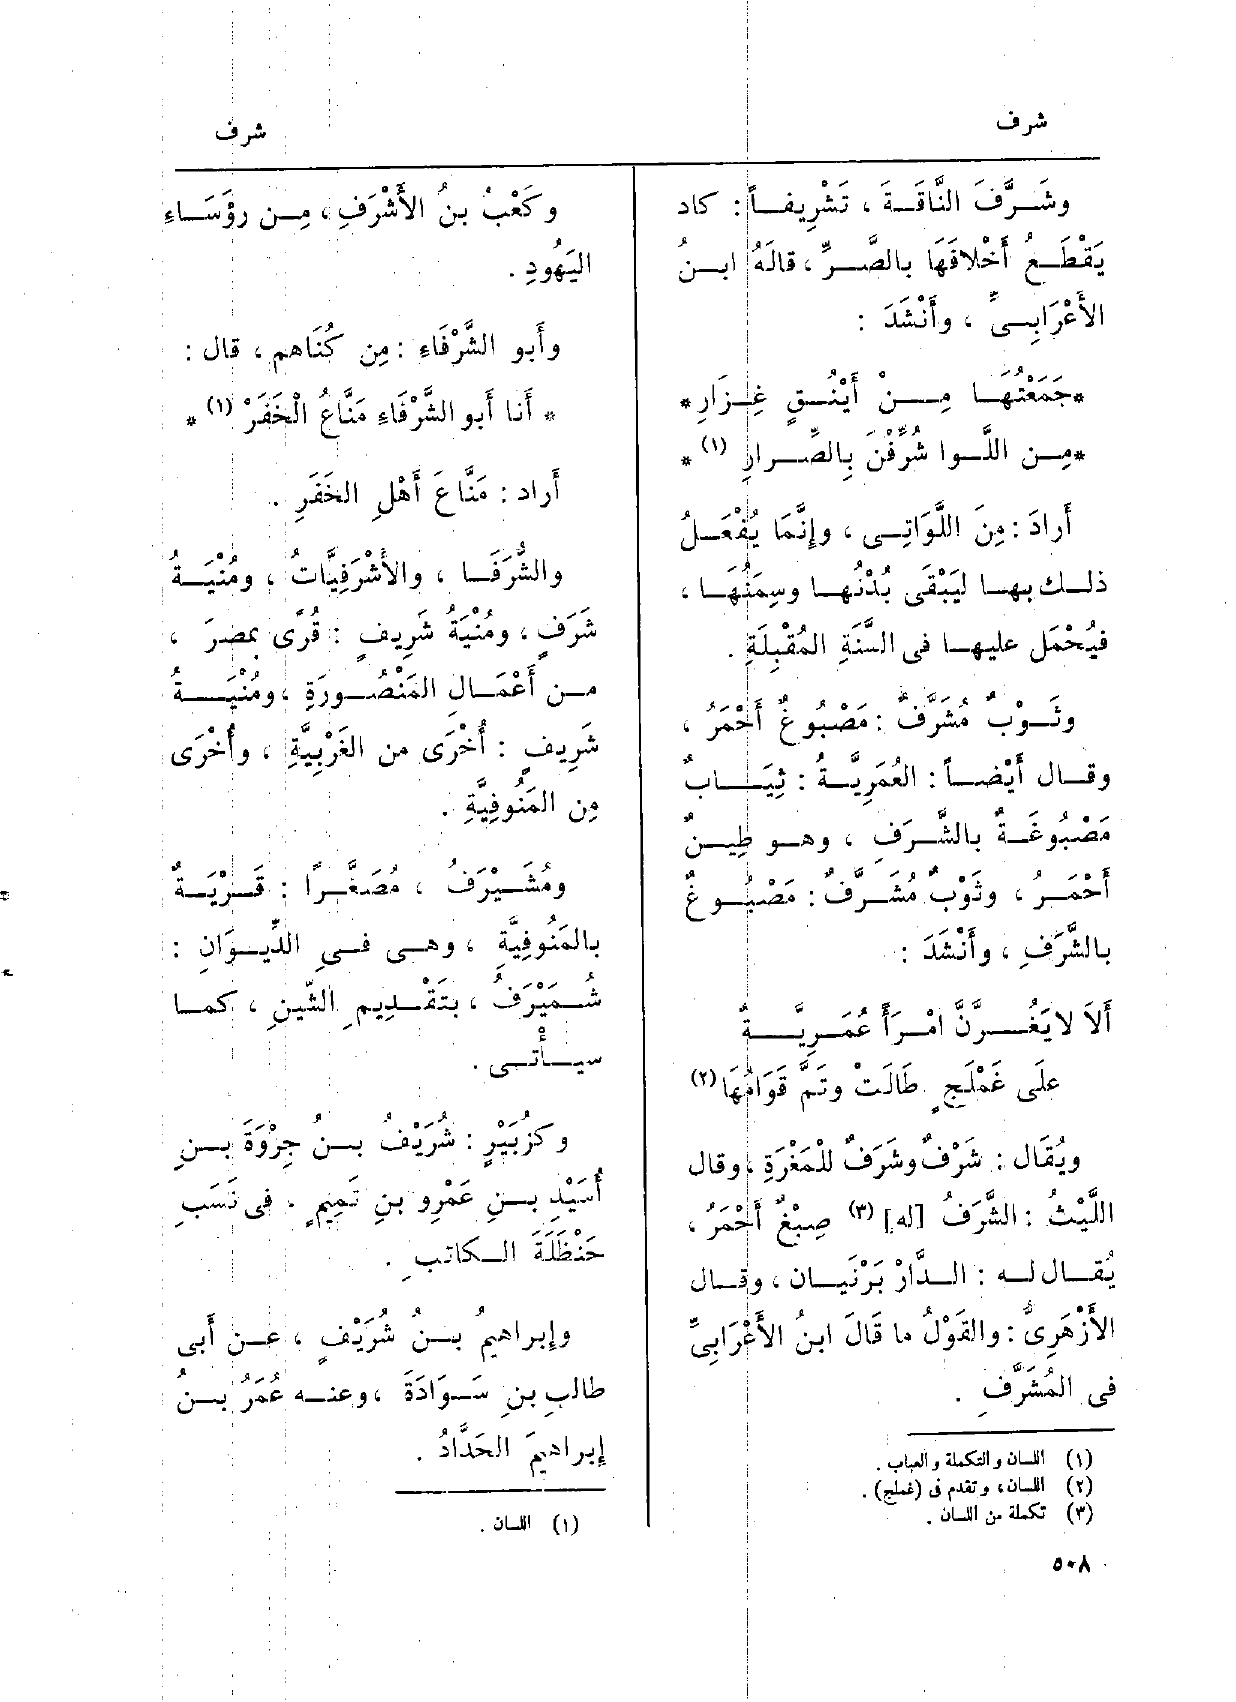 شرف
شرف
وشَرَّفَ النَّاقَةَ ، تَشْرِيفاً : كاد
يَقْطَعُ أَخْلافَهَا بالصَّرِّ ، قالَهُ ابنُ
الأَعْرَابِىِّ ، وأَنْشَدَ :
*جَمَعْتُهَا مِنْ أَيْنُقٍ غِزَارِ*
*مِن اللَّوا شُرِّفْنَ بِالصِّرارِ (١) *
أَرادَ : مِنَ اللَّوَاتِى ، وإِنَّمَا يُفْعَلُ
ذلك بها لِيَبْقَى بُدْنُها وسِمَنُهَا ،
فيُحْمَل عليها فى السَّنَةِ المُقْبِلَةِ .
وثَوْبٌ مُشَرَّفٌ : مَصْبُوغٌ أَحْمَرُ ،
وقال أَيْضاً : العُمَرِيَّةُ : ثِيَابٌ
مَصْبُوغَةٌ بالشَّرَفِ ، وهو طِينٌ
أَحْمَرُ ، وثَوْبٌ مُشَرَّفٌ : مَصْبُوغٌ
بالشَّرَفِ ، وأَنْشَدَ :
أَلاَ لا يَغُرَّنَّ امْرَأً عُمَرِيَّةٌ
علَى غَمْلَجٍ طَالَتْ وتَمَّ قَوَامُهَا (٢)
ويُقَال : شَرْفٌ وشَرَفٌ للْمَغْرَةِ ، وقال
اللَّيْثُ : الشَّرَفُ [له] (٣) صِبْغٌ أَحْمَرُ ،
يُقال له : الدَّارْ بَرْنَيان ، وقال
الأَزْهَرِىُّ : والقَوْلُ ما قَالَ ابنُ الأَعْرَابِىِّ
فى المُشَرَّفِ .
(١) اللسان والتكملة والعباب .
(٢) اللسان، وتقدم فى (غملج) .
(٣) تكملة من اللسان .
٥٠٨
وكَعْبُ بنُ الأَشْرَفِ ، مِن رؤَسَاءِ
اليَهُودِ .
وأَبو الشَّرْفَاءِ : مِن كُنَاهم ، قال :
* أَنا أَبو الشَّرْفَاءِ مَنَّاعُ الْخَفَرْ (١) *
أَراد : مَنَّاعَ أَهْلِ الخَفَرِ .
والشُّرَفَا ، والأَشْرَفِيَّاتُ ، ومُنْيَةُ
شَرَفٍ ، ومُنْيَةُ شَرِيفٍ : قُرًى بمصرَ ،
من أَعْمَالِ المَنْصُورَةِ ، ومُنْيَةُ
شَرِيفٍ : أُخْرَى من الغَرْبِيَّةِ ، وأُخْرَى
مِن المَنُوفِيَّةِ .
ومُشَيْرَفُ ، مُصَغَّرًا : قَرْيَةٌ
بالمَنُوفِيَّةِ ، وهى فى الدِّيوَانِ :
شُمَيْرَفُ ، بتَقْدِيمِ الشِّينِ ، كما
سيأْتى .
وكزُبَيْرٍ : شُرَيْفُ بنُ جِرْوَةَ بنِ
أُسَيْدِ بنِ عَمْرِو بنِ تَمِيمٍ . فى نَسَبِ
حَنْظَلَةَ الكاتبِ .
وإِبراهيمُ بنُ شُرَيْفٍ ، عن أَبى
طالبِ بنِ سَوَادَةَ ، وعنه عُمَرُ بنُ
إِبراهيمَ الحَدَّادُ .
(١) اللسان .